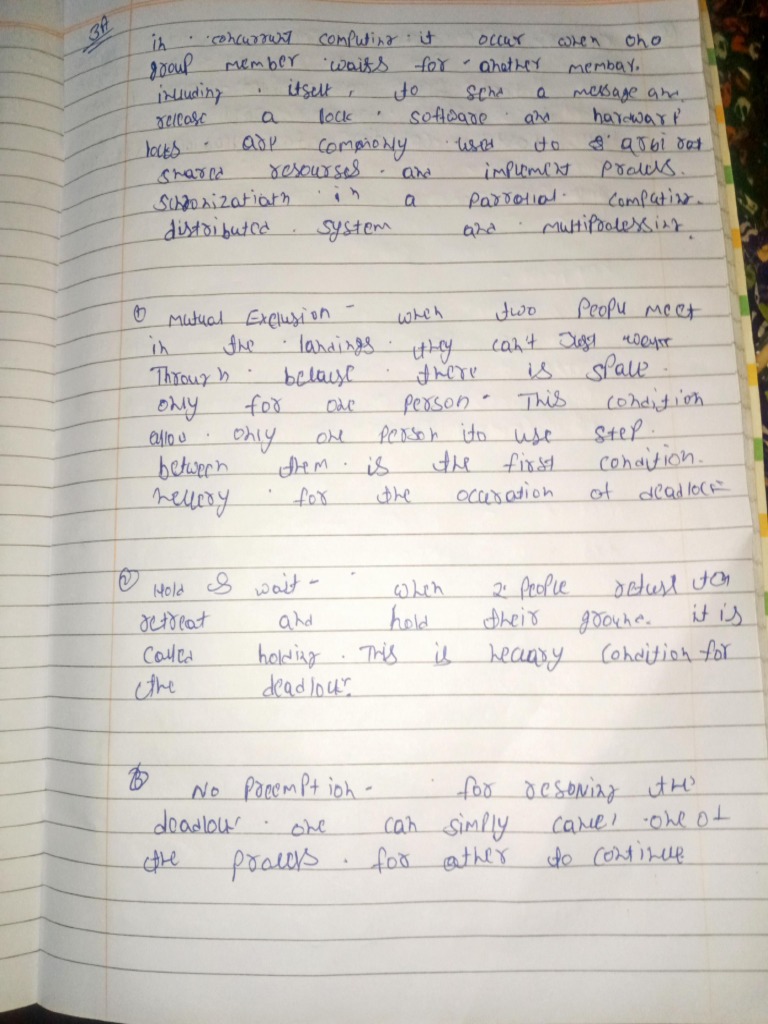 3A
in concurrent computing it occur when one
group member waits for another member.
including itself, to send a message and
release a lock software and hardware
locks are commonly used to arbi rat
shared resourses and implement process.
in a parrallal computing.
distributed system and multiprocessing.
① Mutual Exclusion - when two people meet
in the landings they can't Just
Through because there is space
only for one person. This condition
allow only one person to use step
between them is the first condition.
for the occuration of deadlock
② Hold & wait - when 2 people refuse
retreat and hold their ground. it is
called holding. This is condition for
the deadlock.
③ No Preemption - for resoving the
deadlock one can simply cancel one of
the process for other to continue